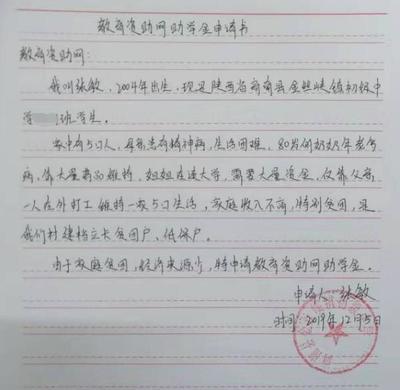 教育资助网助学金申请书
教育资助网:
我叫张敏,2004年出生,现是陕西省商南县金丝峡镇初级中
学 班学生。
家中有5口人,母亲患有精神病,生活困难,80岁的奶奶年老多
病,靠大量药品维持,姐姐在读大学,需要大量资金,仅靠父亲
一人在外打工维持一家5口生活,家庭收入不高,特别贫困,是
我们村建档立卡贫困户、低保户。
由于家庭贫困,经济来源少,特申请教育资助网助学金。
申请人:张敏
时间 2019年12月5日